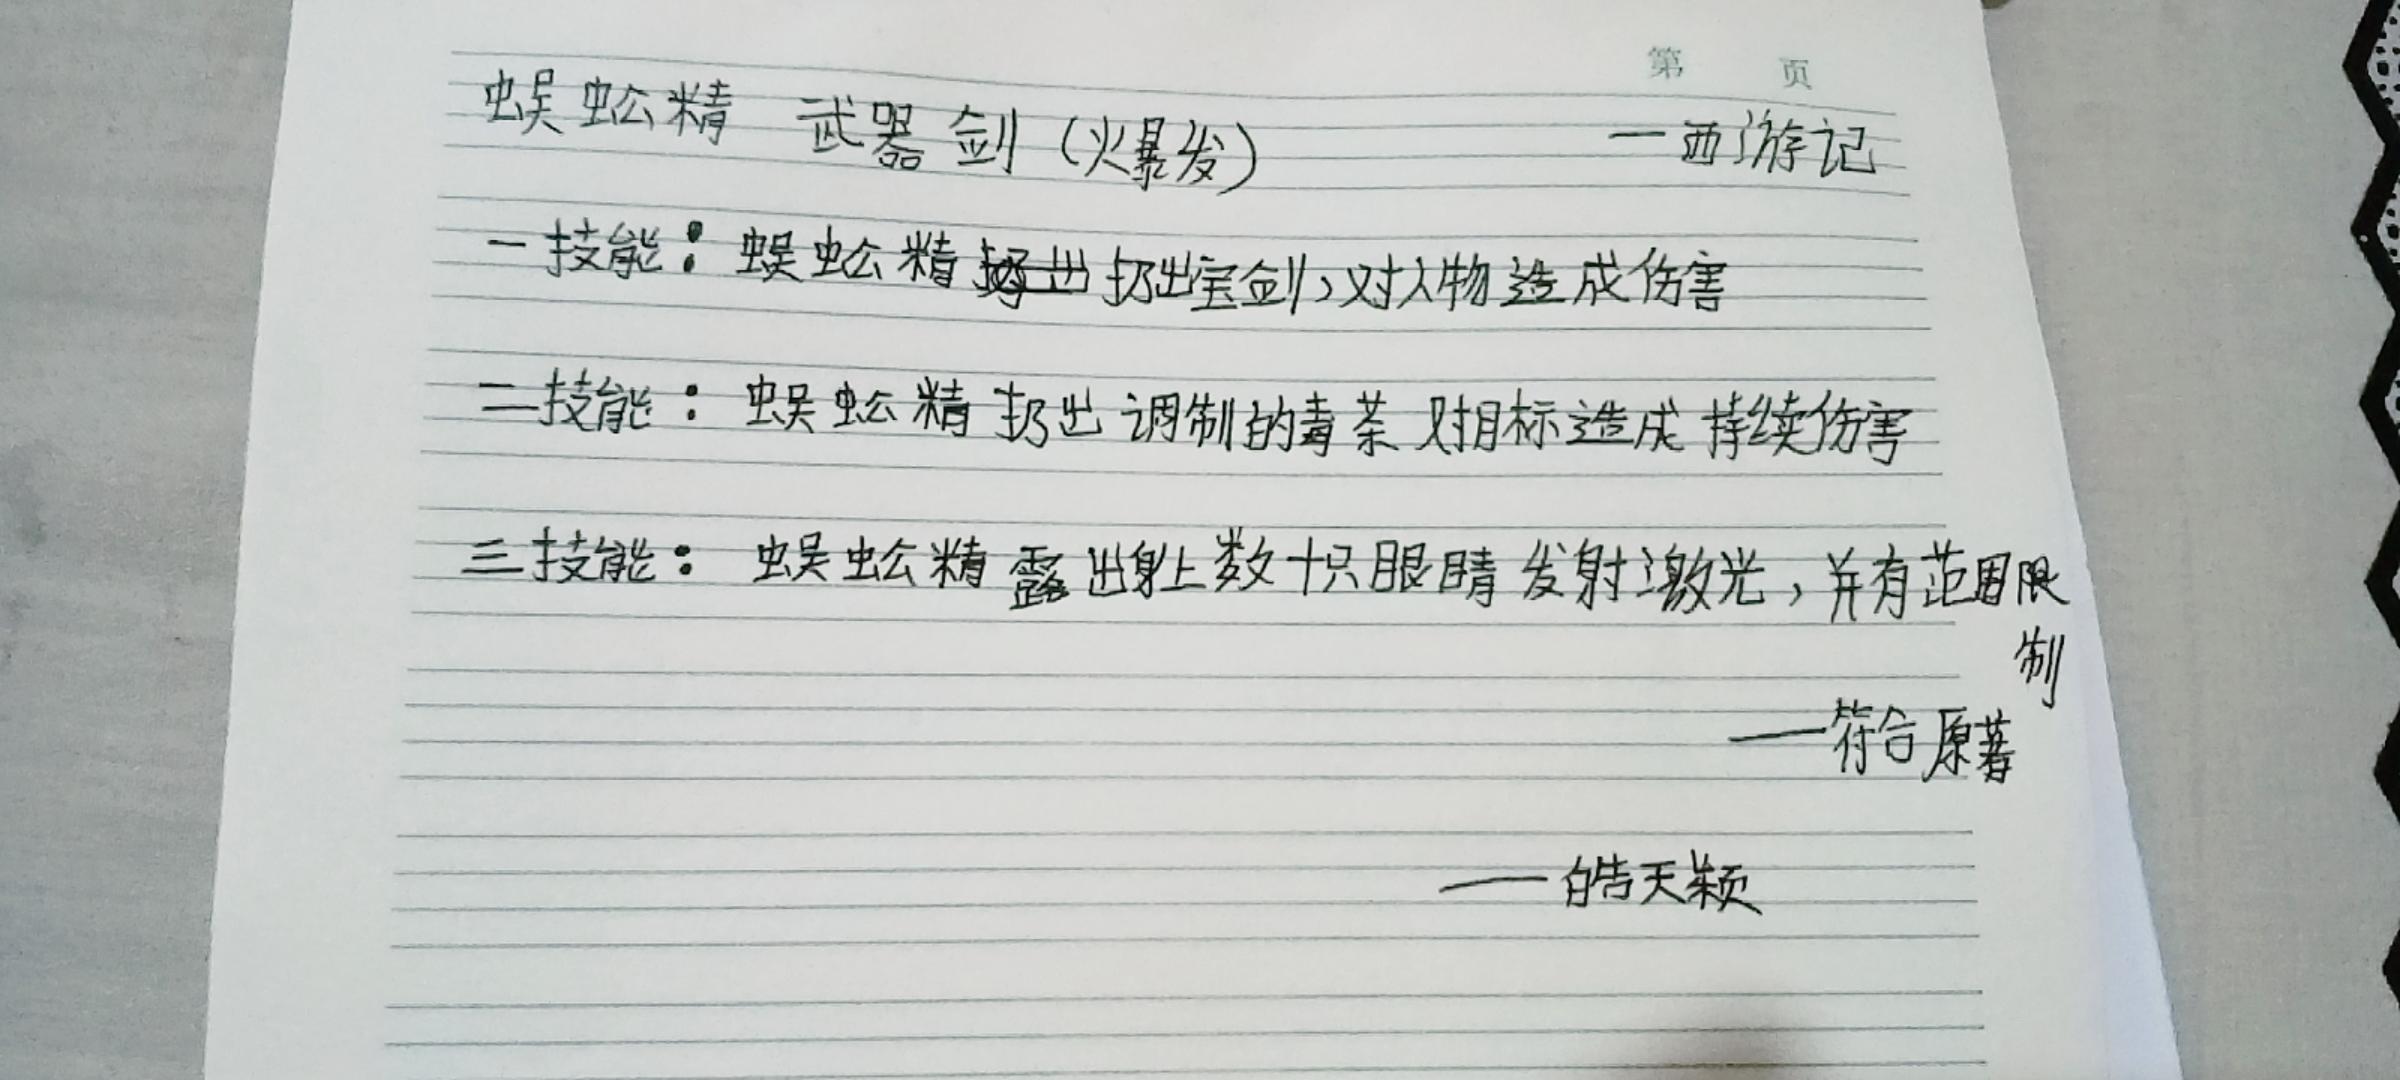 第 页
蜈蚣精 武器剑（爆发） —西游记
一技能：蜈蚣精扔出宝剑，对人物造成伤害
二技能：蜈蚣精扔出调制的毒茶对目标造成持续伤害
三技能：蜈蚣精露出身上数十只眼睛发射激光，并有范围限
制
——符合原著
——皓天颖